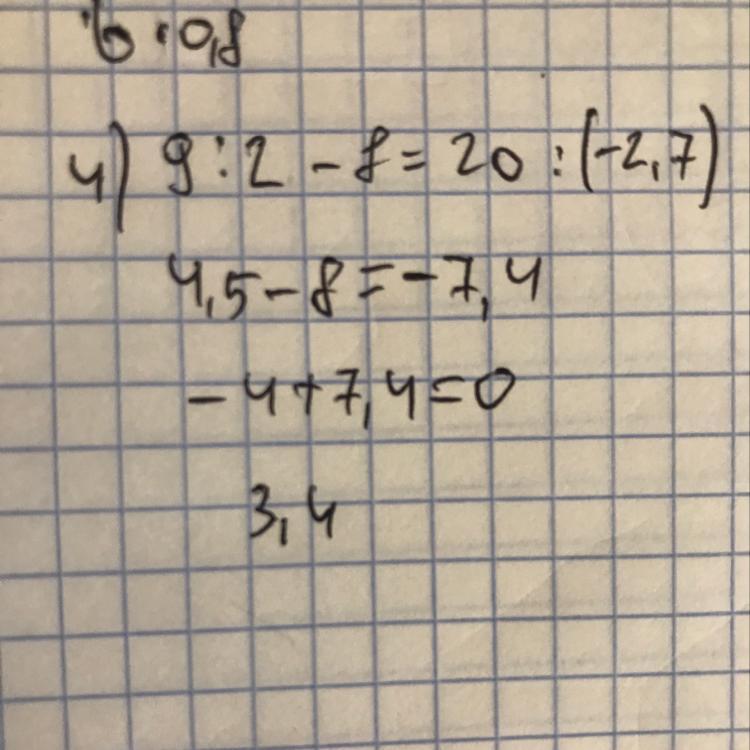 6 · 0,8
4) 9 : 2 - 8 = 20 : (-2,7)
4,5 - 8 = -7,4
- 4 + 7,4 = 0
3,4